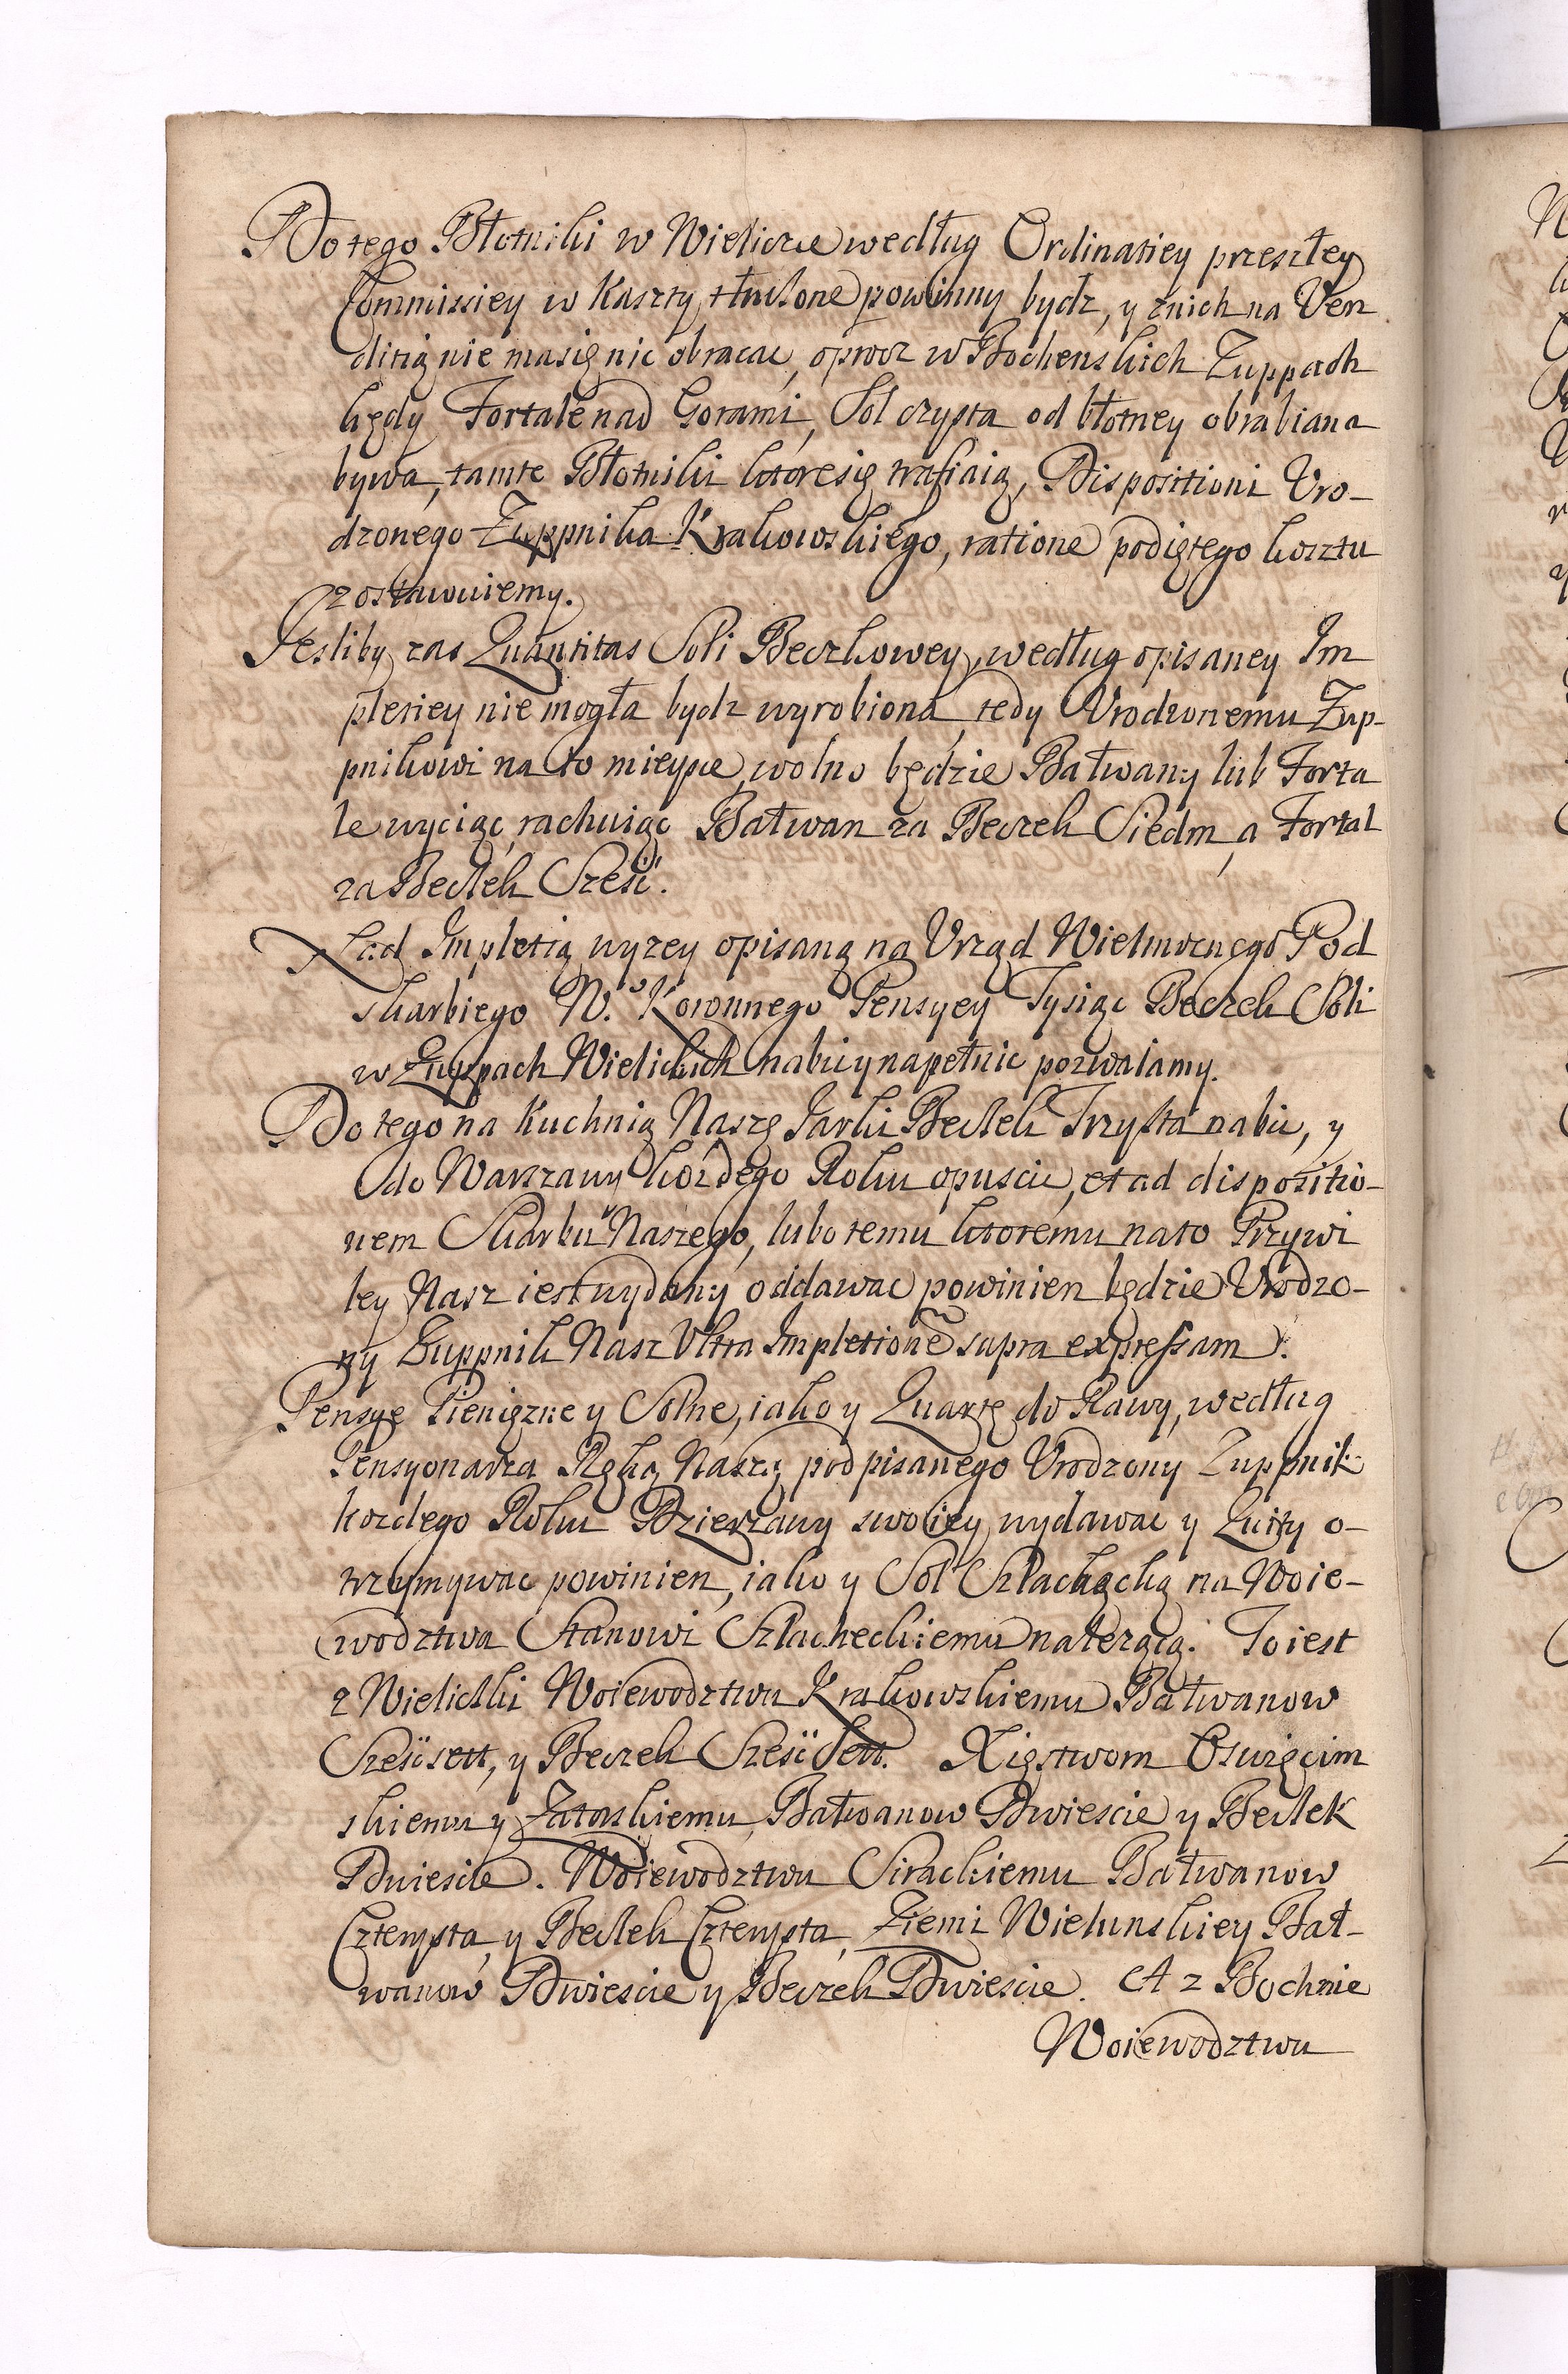 Do tego Błotniki w Wieliczce według Ordinatiey przeszłey
Commissiey w Kaszty tłuczone powinny bydz, y z nich na Ven
ditią nie ma się nic obracac, oprocz w Bochenskich Zuppach
kędy Fortale nad Gorami, Sol czysta od błotney obrabiana
bywa, tamte Błotniki ktore się trafiaią, Dispositioni Vro-
dzonego Zuppnika Krakowskiego, ratione podiętego kosztu
zostawuiemy.
Jesliby zas Quantitas Soli Beczkowey, według opisaney Im
pletiey nie mogła bydz wyrobiona, tedy Vrodzonemu Zup-
pnikowi na to mieysce, wolno będzie Bałwany lub Forta
le wyciąc, rachuiąc Bałwan za Beczek Siedm, a Fortal
za Beczek Szesć.
Nad Impletią wyzey opisaną na Vrząd Wielmoznego Pod
skarbiego W. Koronnego Pensyey Tysiąc Beczek Soli
w Zuppach Wielickich nabic y napełnic pozwalamy.
Do tego na Kuchnią Naszę Jarki Beczek Trzysta nabic, y
do Warszawy kozdego Roku opuscic, et ad dispositio-
nem Skarbu Naszego, lubo temu ktoremu na to Przywi
ley Nasz iest wydany oddawac powinien będzie Vrodzo-
ny Zuppnik Nasz Vltra Impletionē supra expressam.
Pensye Pieniężne y Solne, iako y Quartę do Rawy, według
Pensyonarza Ręką Naszą podpisanego Vrodzony Zuppnik
kozdego Roku Dzierzawy swoiey wydawac y Quity o-
trzymywac powinien, iako y Sol Szlachecką na Woie-
wodztwa Stanowi Szlacheckiemu nalezącą. To iest
z Wieliczki Woiewodztwu Krakowskiemu Bałwanow
Szescsett, y Beczek Szescsett. Xięstwom Oswięcim
skiemu y Zatorskiemu, Bałwanow Dwiescie y Beczek
Dwiescie. Woiewodztwu Sirackiemu Bałwanow
Czterysta, y Beczek Czterysta, Ziemi Wielunskiey Bał-
wanow Dwiescie y Beczek Dwiescie. A z Bochnie
Woiewodztwu